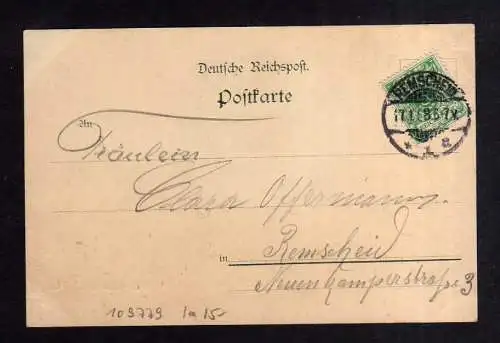 Deutsche Reichspost.
Postkarte
An
Fräulein
Clara Offermanns.
in Remscheid
Neuenkamperstraße 3
REMSCHEID
* 1 a
109779 Ia 15-